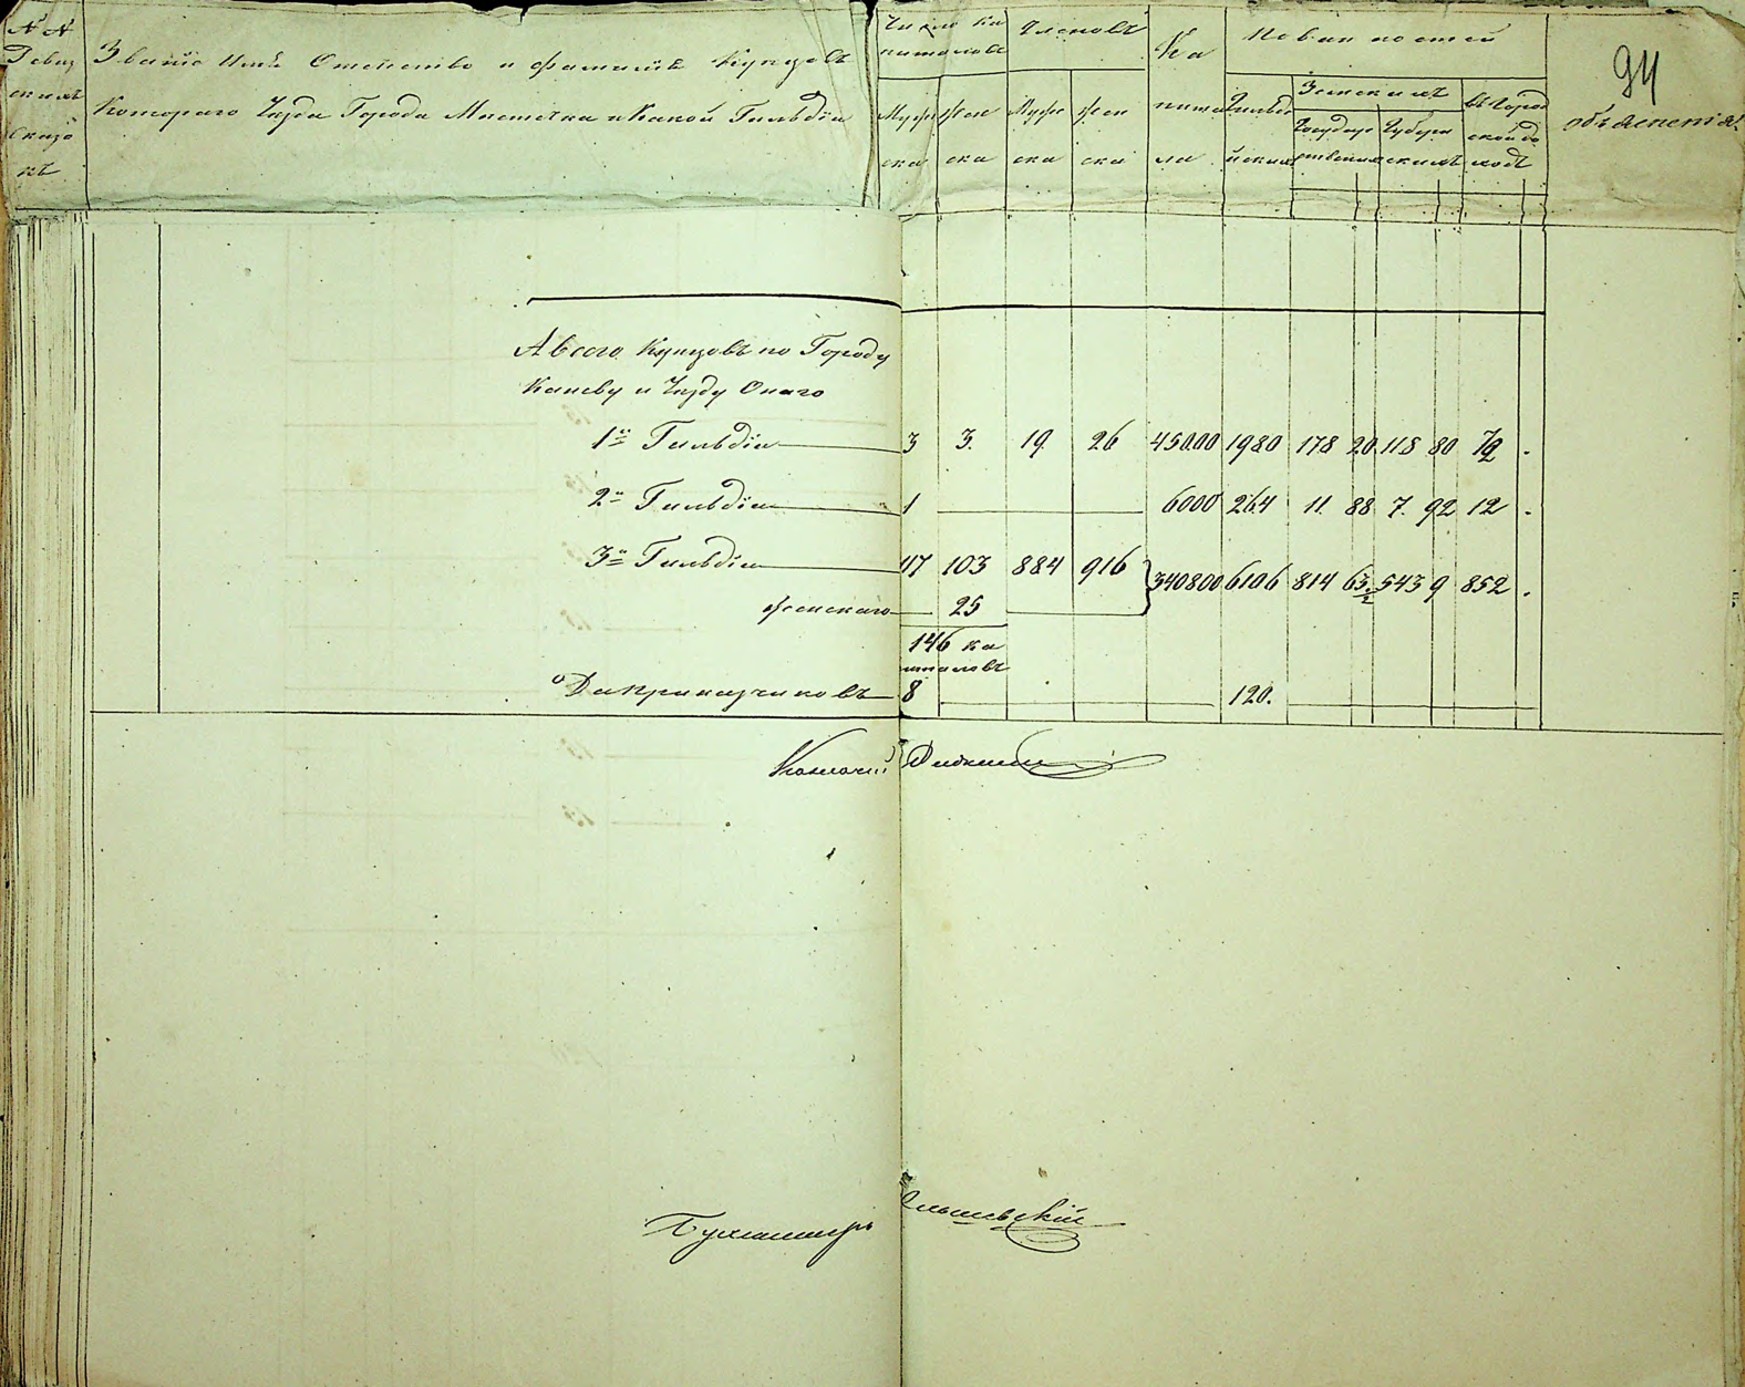 № №
Ревиз
скихъ
сказо
къ
Званіе Имя Отечество и фамилія Купцовъ
Котораго Уезда Города Местечка и Какой Гильдіи
Число Ка
питаловъ
Членовъ
Ка
питалла
Повинностей
Мужеска
Женска
Мужеска
Женска
Гильдейских
Земскихъ
Государственных
Губернскихъ
въ Городской доходъ
94
объясненія
А всего Купцовъ по Городу
Каневу и Уезду Онаго
1й Гильдіи 3 3. 19. 26 45000 1980 178 20 118 80 72 .
2й Гильдіи 1 6000 264 11. 88 7. 92 12 .
3й Гильдіи 117 103 884 916 340800 6106 814 63 1/2 543 9 852 .
Женскаго 25
146 ка
питаловъ
Да Приказчиковъ 8 120.
Бухгалтеръ